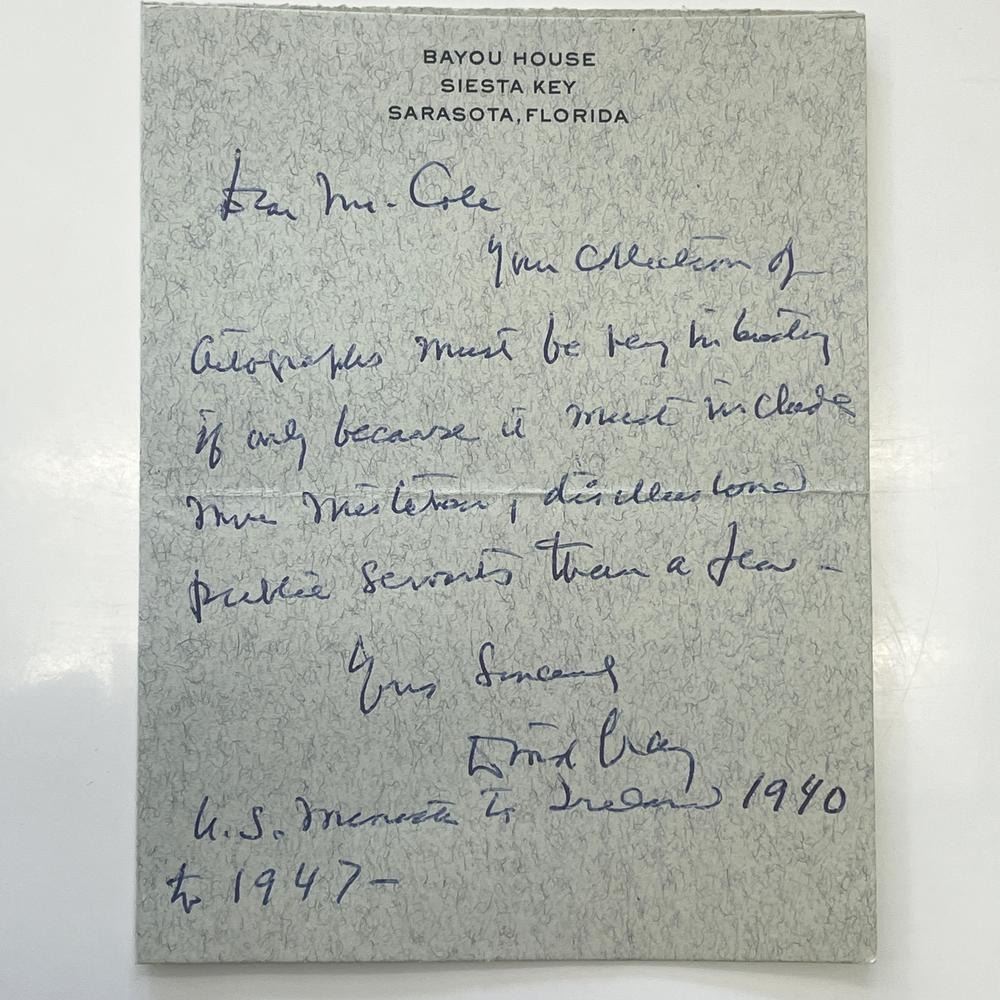 BAYOU HOUSE
SIESTA KEY
SARASOTA, FLORIDA
Dear Mr. Cole
Your collection of
autographs must be very interesting
if only because it must include
more mistaken, disillusioned
public servants than a few -
Yours Sincerely
David Gray
U.S. Minister to Ireland 1940
to 1947-